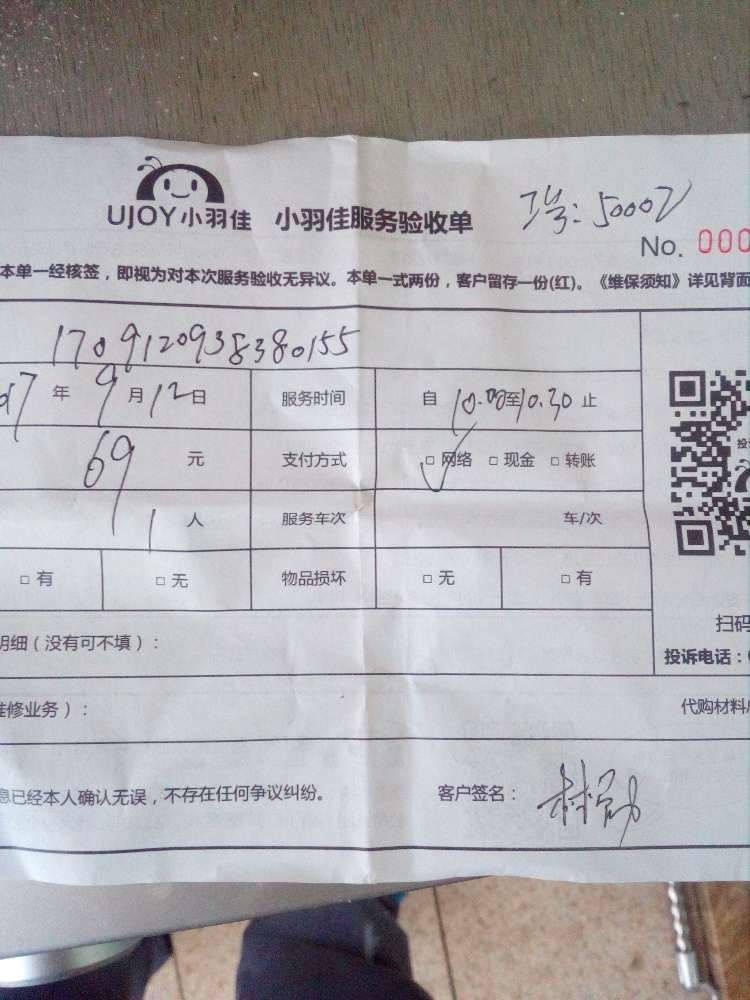 UJOY小羽佳 小羽佳服务验收单
工号：50002
No. 000
本单一经核签，即视为对本次服务验收无异议。本单一式两份，客户留存一份(红)。《维保须知》详见背面
170912093838015​5
17 年 9 月 12 日 服务时间 自 10.00 至 10.30 止
69 元 支付方式 □ 网络 □ 现金 □ 转账
1 人 服务车次 车/次
□ 有 □ 无 物品损坏 □ 无 □ 有
扫码
明细（没有可不填）：
投诉电话：
维修业务）：
代购材料
息已经本人确认无误，不存在任何争议纠纷。 客户签名：